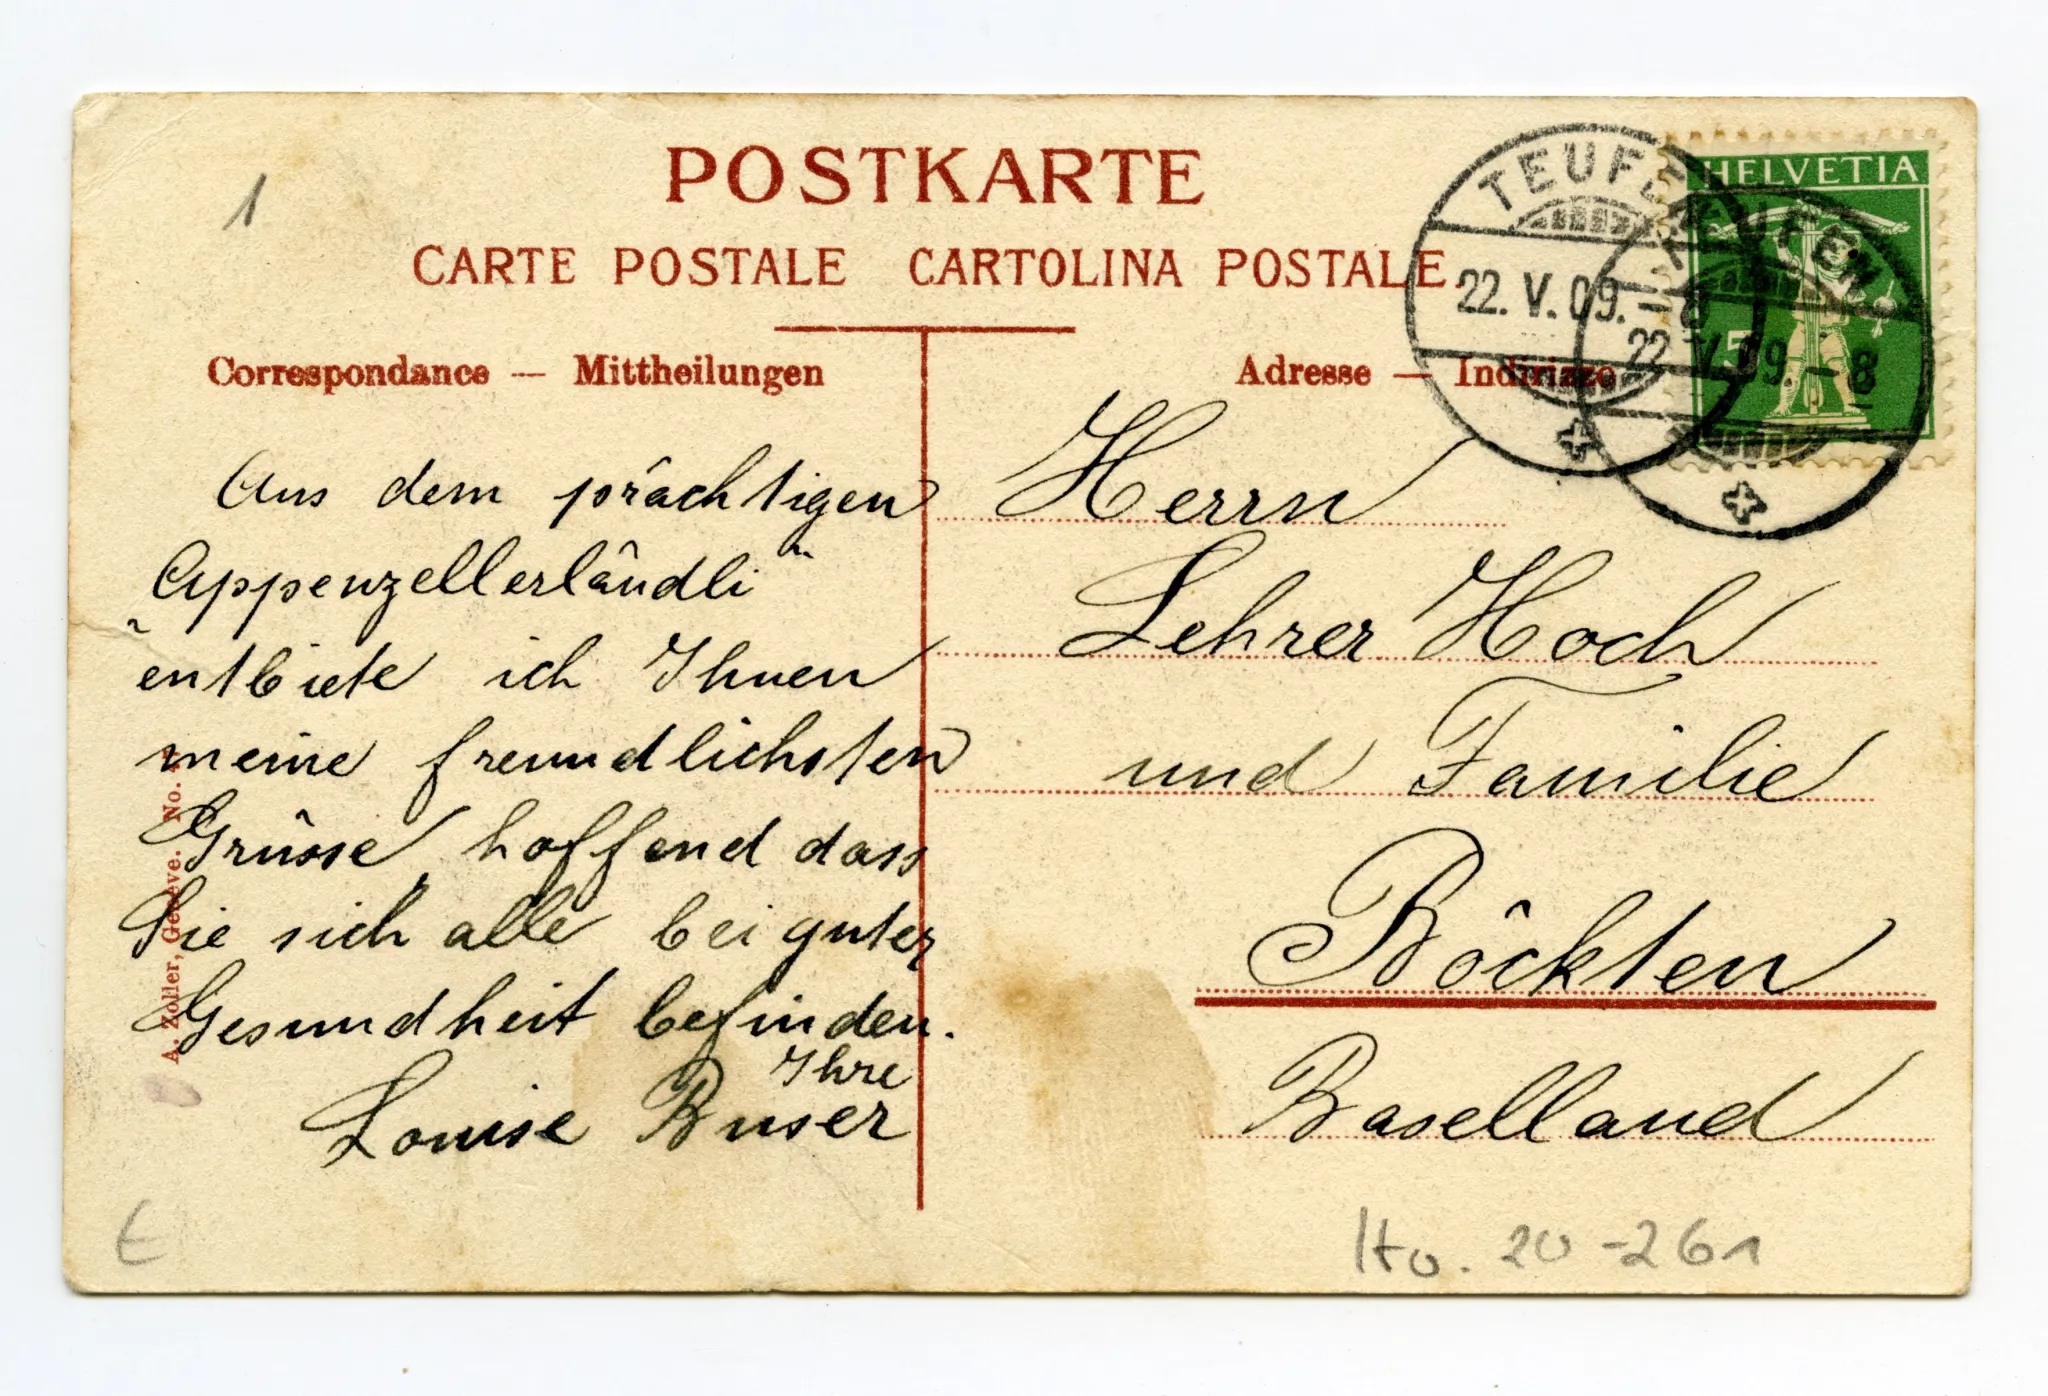 1
POSTKARTE
CARTE POSTALE CARTOLINA POSTALE.
Correspondance — Mittheilungen
Aus dem prächtigen
"Appenzellerländli"
entbiete ich Ihnen
meine freundlichsten
Grüsse, hoffend dass
Sie sich alle bei guter
Gesundheit befinden.
Ihre
Louise Buser
A. Zoller, Genève. No.
Adresse — Indirizzo
Herrn
Lehrer Hoch
und Familie
Böckten
Baselland
HELVETIA
5
TEUFEN
22.V.09.-8
TEUFEN
22.V.09-8
20-261